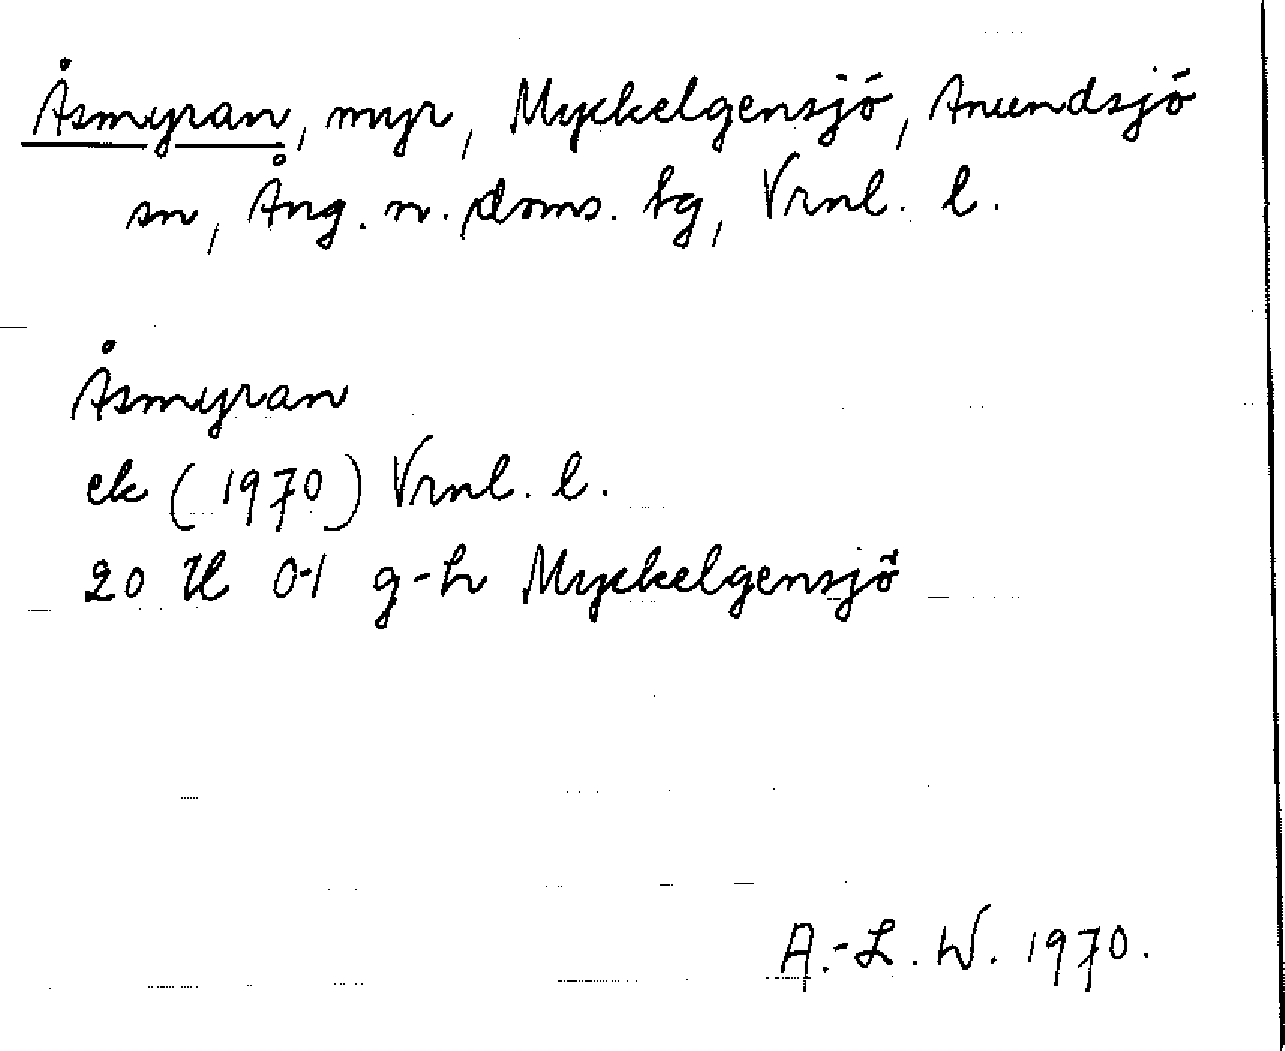 Åsmyran, myr, Myckelgensjö, Anundsjö
sn, Ång. n. doms. tg, Vrnl. l.
Åsmyran
ek (1970) Vrnl. l.
20 H 0-1 g-h Myckelgensjö
A.-L. W. 1970.